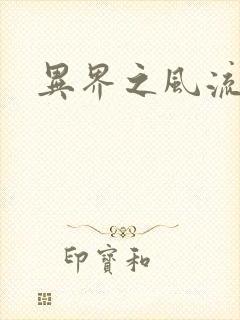 異界之風流
印寶和